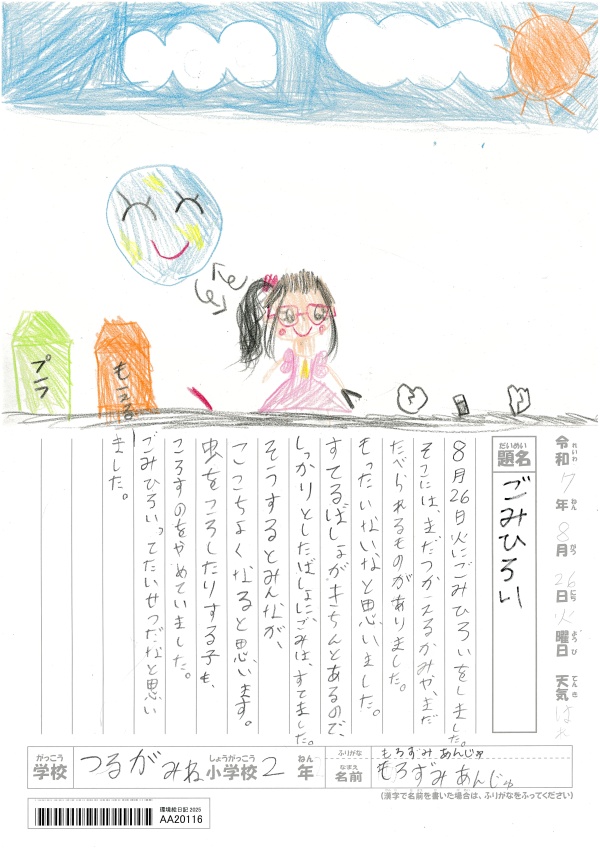 プラ
もえる
令和7年8月26日火曜日 天気 はれ
れいわ ねん がつ にち ようび てんき
だいめい
題名
ごみひろい
8月26日火にごみひろいをしました。
そこには、まだつかえるかみや、まだ
たべられるものがありました。
もったいないなと思いました。
すてるばしょがきちんとあるので、
しっかりとしたばしょにごみは、すてました。
そうするとみんなが、
ここちよくなると思います。
虫をころしたりする子も、
ころすのをやめていました。
ごみひろいってたいせつだなと思い
ました。
がっこう しょうがっこう ねん
学校 つるがみね小学校2年
ふりがな もろずみ あんじゅ
なまえ
名前 もろずみ あんじゅ
(漢字で名前を書いた場合は、ふりがなをふってください)
環境絵日記 2025
AA20116